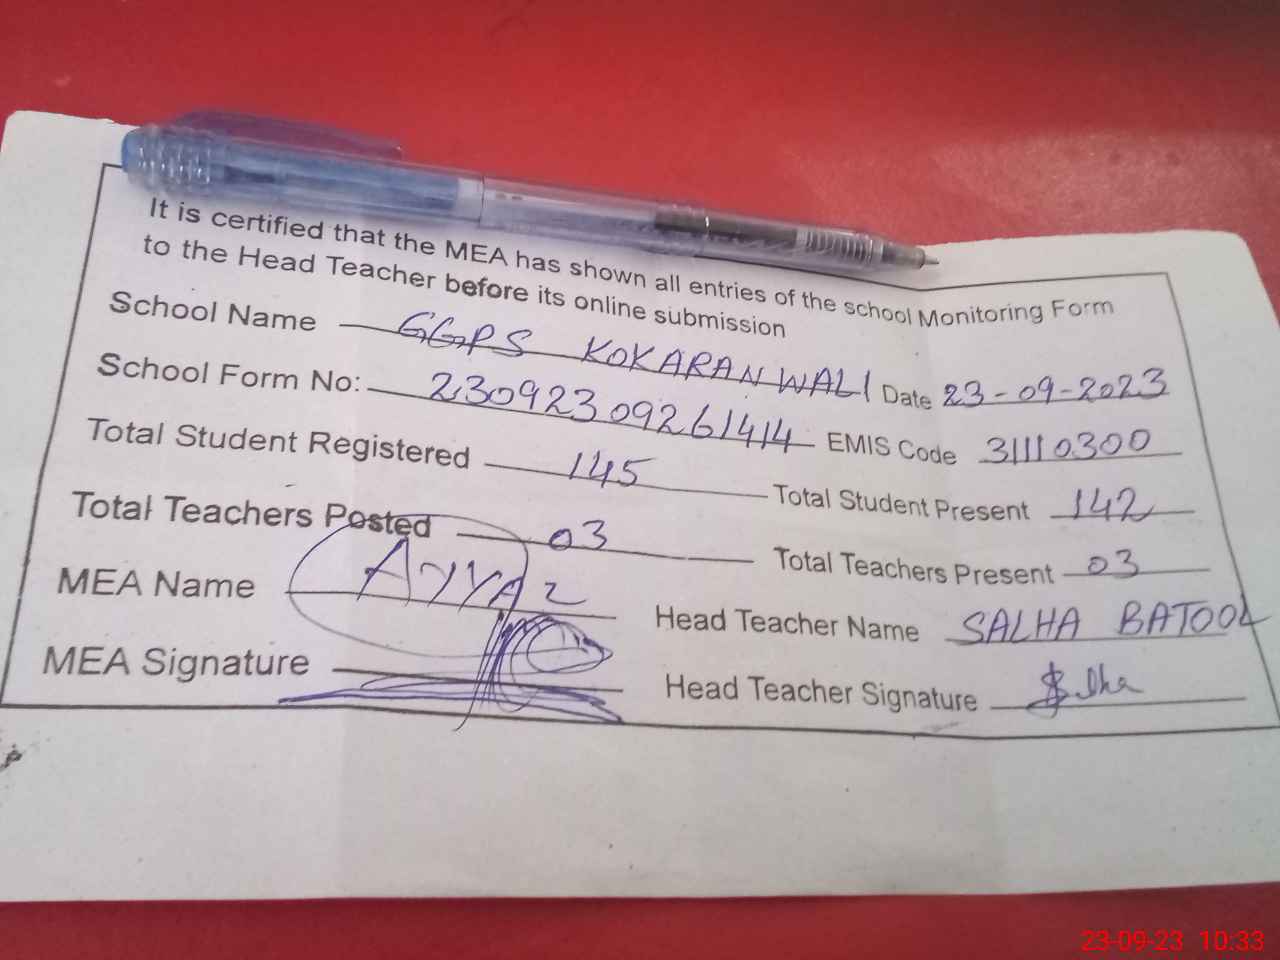 It is certified that the MEA has shown all entries of the school Monitoring Form
to the Head Teacher before its online submission
School Name GGPS KOKARAN WALI Date 23-09-2023
School Form No: 23092309261414 EMIS Code 31110300
Total Student Registered 145 Total Student Present 142
Total Teachers Posted 03 Total Teachers Present 03
MEA Name Ayyaz Head Teacher Name SALHA BATOOL
MEA Signature Head Teacher Signature Salha
23-09-23 10:33